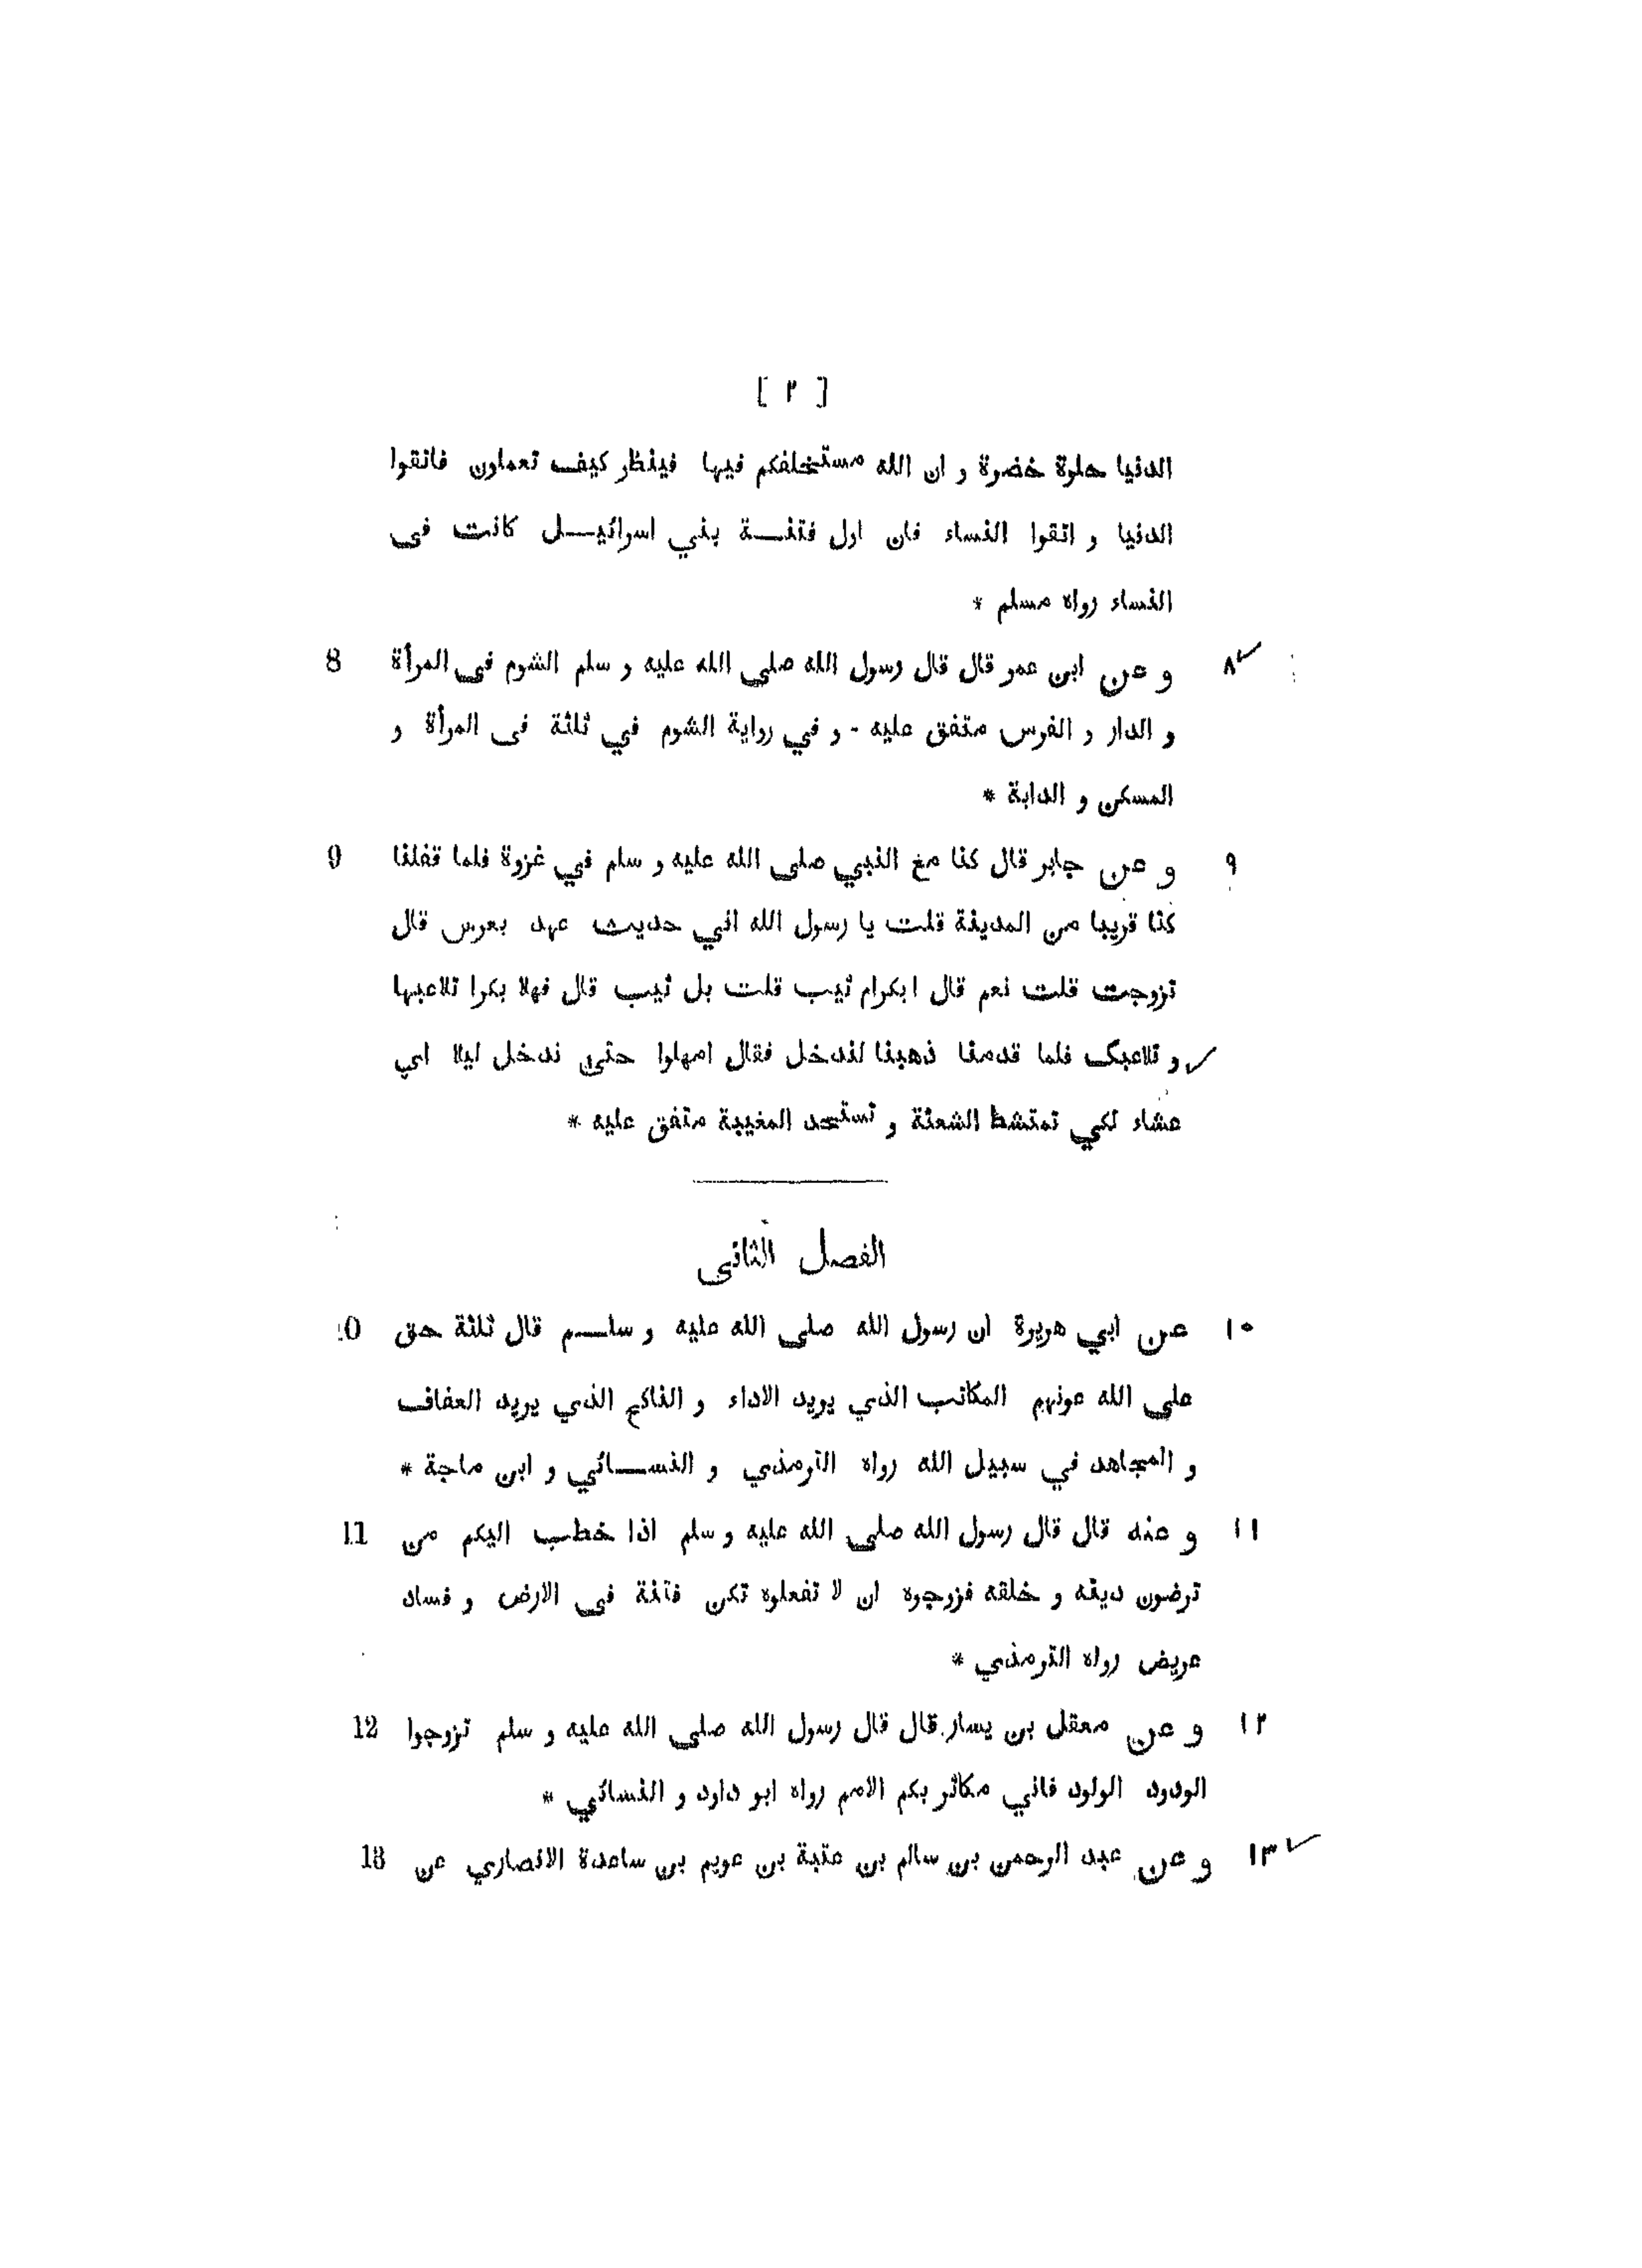 [ ٢ ]
الدنيا حلوة خضرة و ان الله مستخلفكم فيها فينظر كيف تعملون فاتقوا
الدنيا و اتقوا النساء فان اول فتنـــة بني اسرائيـــل كانت فى
النساء رواه مسلم *
٨ و عن ابن عمر قال قال رسول الله صلى الله عليه و سلم الشوم فى المرأة 8
و الدار و الفرس متفق عليه - و في رواية الشوم في ثلثة فى المرأة و
المسكن و الدابة *
٩ و عن جابر قال كنا مع النبي صلى الله عليه و سلم في غزوة فلما قفلنا 9
كنا قريبا من المدينة قلت يا رسول الله اني حديث عهد بعرس قال
تزوجت قلت نعم قال ابكرام ثيب قلت بل ثيب قال فهلا بكرا تلاعبها
و تلاعبك فلما قدمنا ذهبنا لندخل فقال امهلوا حتى ندخل ليلا اي
عشاء لكي تمتشط الشعثة و تستحد المغيبة متفق عليه *
الفصل الثانى
١٠ عن ابي هريرة ان رسول الله صلى الله عليه و سلـــم قال ثلثة حق 10
على الله عونهم المكاتب الذي يريد الاداء و الناكح الذي يريد العفاف
و المجاهد في سبيل الله رواه الترمذي و النســـائي و ابن ماجة *
١١ و عنه قال قال رسول الله صلى الله عليه و سلم اذا خطب اليكم من 11
ترضون دينه و خلقه فزوجوه ان لا تفعلوه تكن فتنة فى الارض و فساد
عريض رواه الترمذي *
١٢ و عن معقل بن يسار قال قال رسول الله صلى الله عليه و سلم تزوجوا 12
الودود الولود فاني مكاثر بكم الامم رواه ابو داود و النسائي *
١٣ و عن عبد الرحمن بن سالم بن عتبة بن عويم بن ساعدة الانصاري عن 13